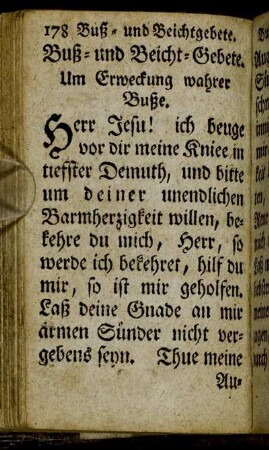 178 Buß- und Beichtgebete.
Buß- und Beicht-Gebete.
Um Erweckung wahrer
Buße.
Herr Jesu! ich beuge
vor dir meine Kniee in
tiefster Demuth, und bitte
um deiner unendlichen
Barmherzigkeit willen, be-
kehre du mich, Herr, so
werde ich bekehret, hilf du
mir, so ist mir geholfen.
Laß deine Gnade an mir
armen Sünder nicht ver-
gebens seyn. Thue meine
Au-